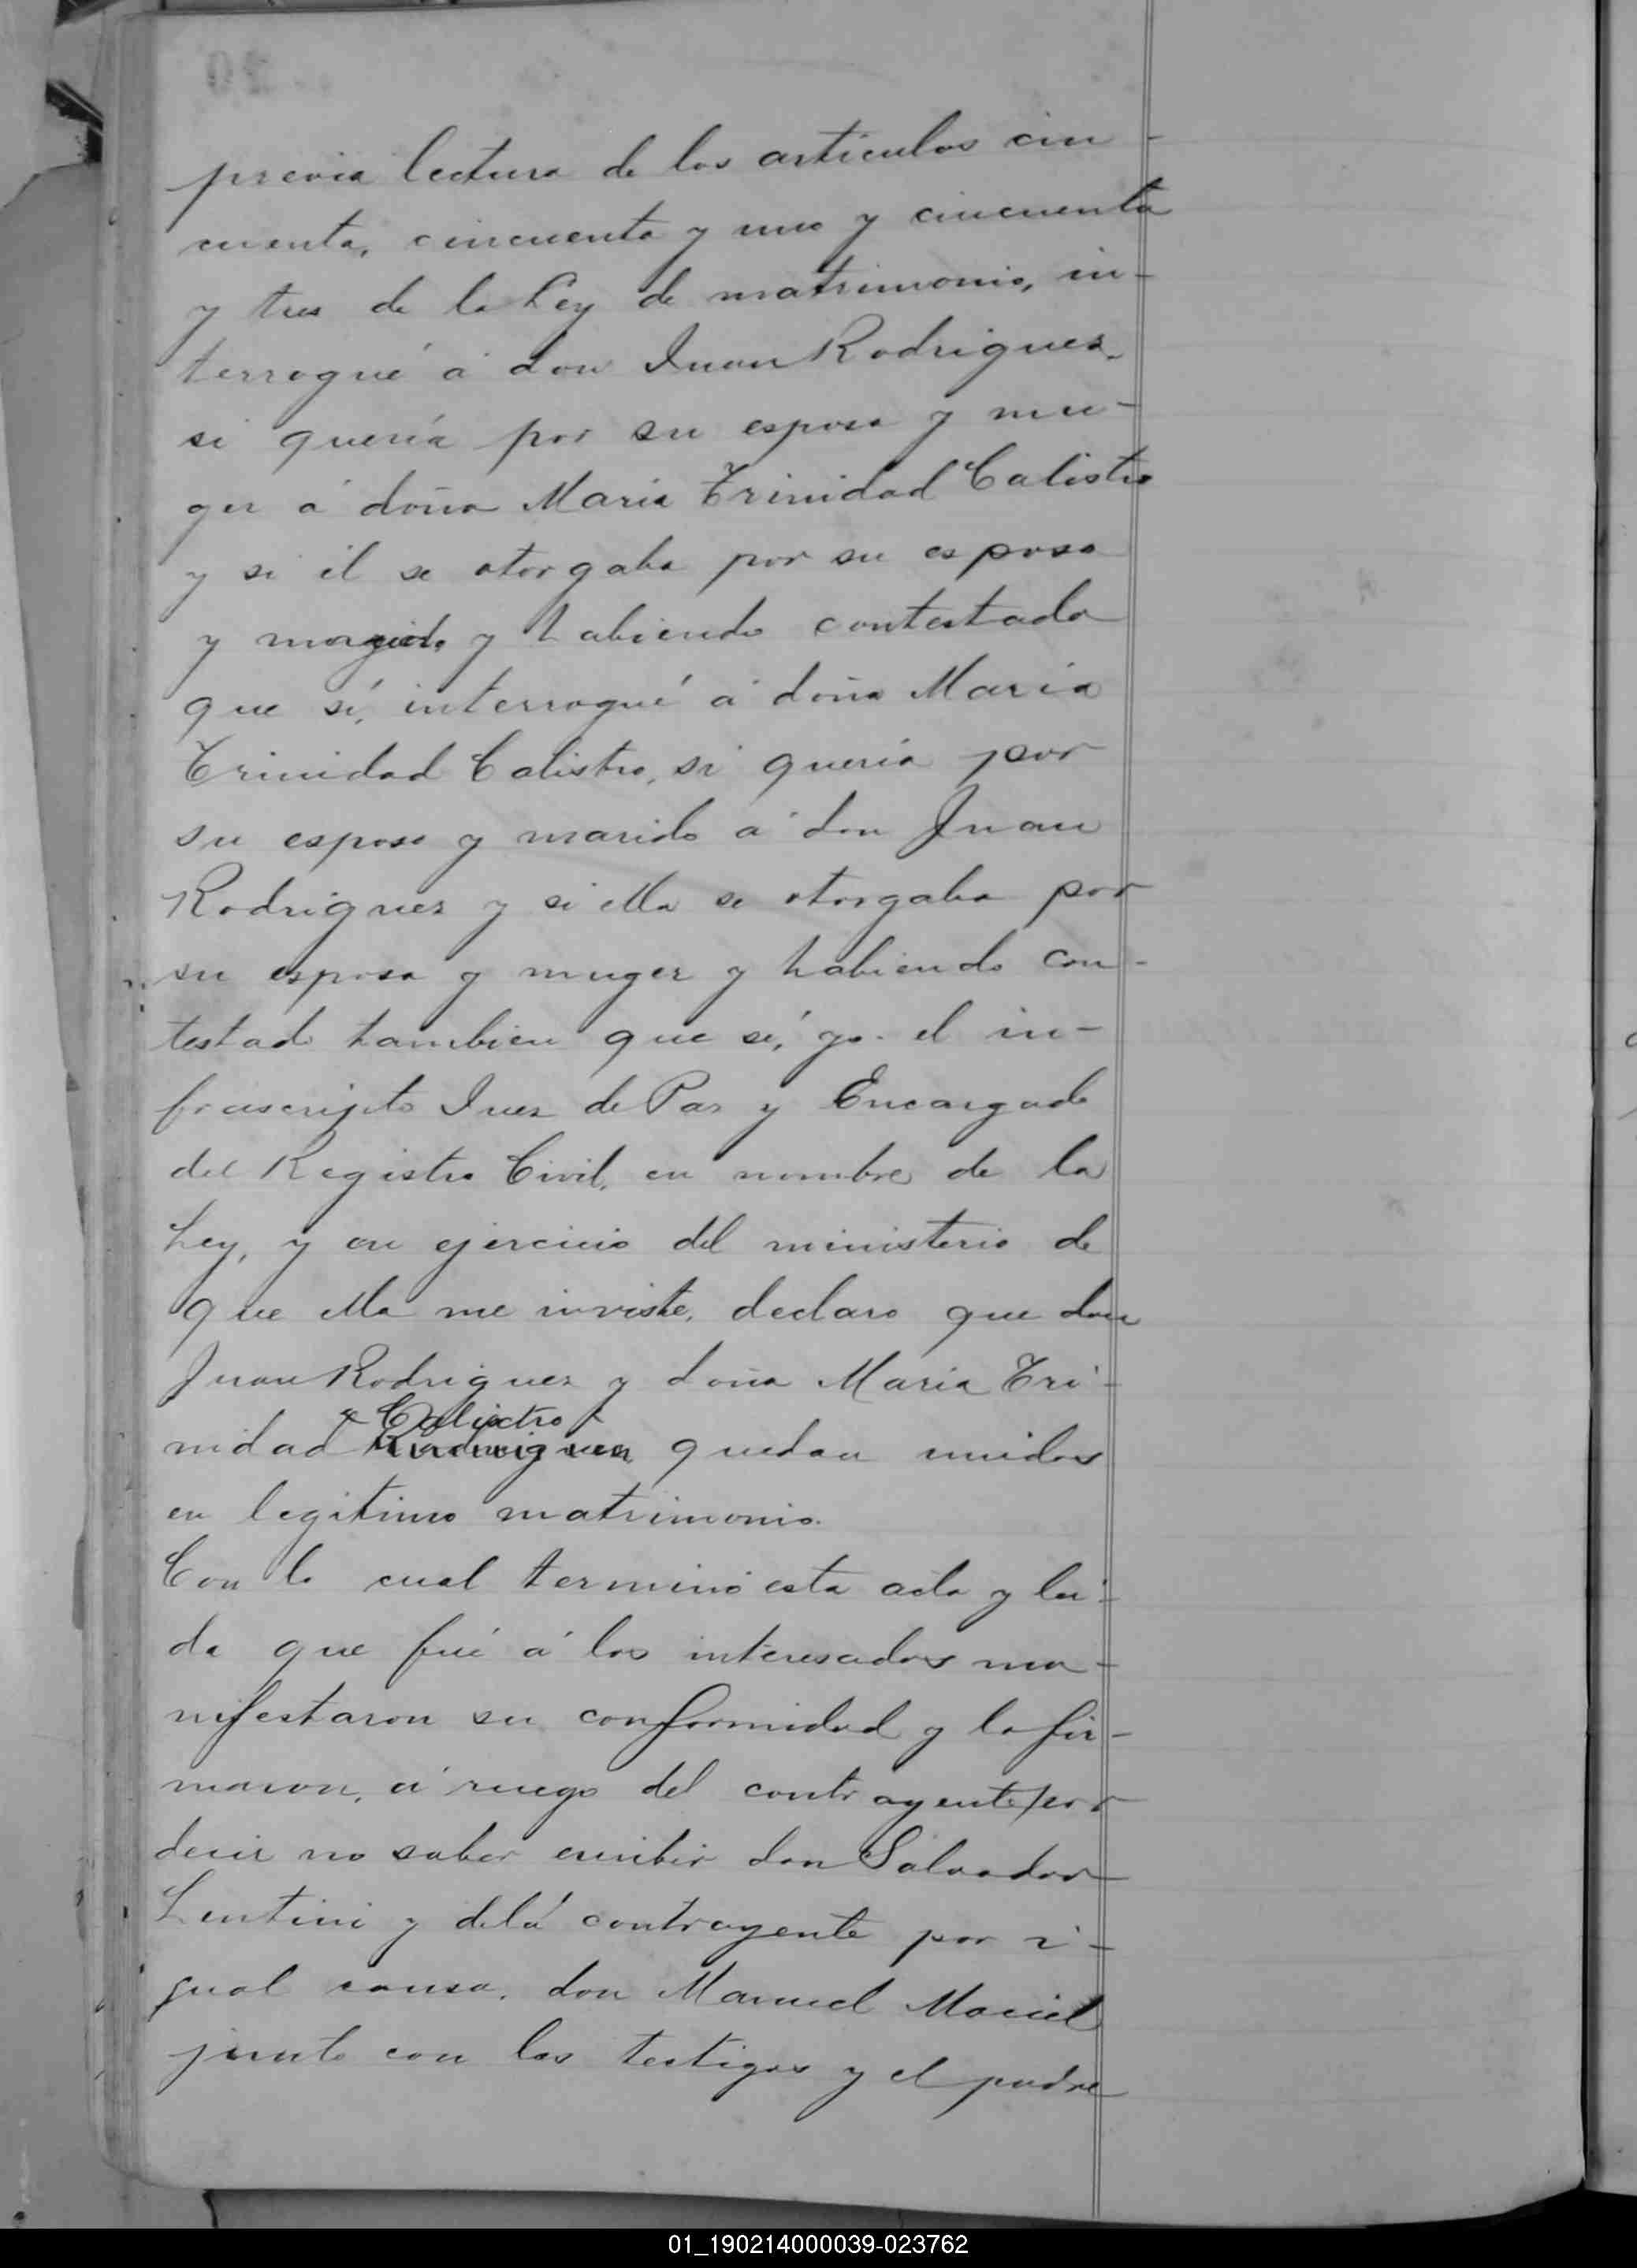 previa lectura de los articulos cin-
cuenta, cincuenta y uno y cincuenta
y tres de la Ley de matrimonio, in-
terrogué á don Juan Rodriguez
si quería por su esposa y mu-
ger á doña Maria Trinidad Calistro
y si él se otorgaba por su esposo
y marido y habiendo contestado
que sí, interrogué á doña Maria
Trinidad Calistro, si queria por
su esposo y marido á don Juan
Rodriguez y si ella se otorgaba por
su esposa y muger y habiendo con-
testado tambien que sí, yo el in-
frascripto Juez de Paz y Encargado
del Registro Civil, en nombre de la
Ley, y en ejercicio del ministerio de
que ella me inviste, declaro que don
Juan Rodriguez y doña Maria Tri-
Calixtro
nidad Rodriguez quedan unidos
en legitimo matrimonio.
Con lo cual terminó esta acta y lei-
da que fué á los interesados ma-
nifestaron su conformidad y la fir-
maron, á ruego del contrayente por
decir no saber escribir don Salvador
Lentini y de la contrayente por i-
gual causa, don Manuel Maciel
junto con los testigos y el padre
01_190214000039-023762